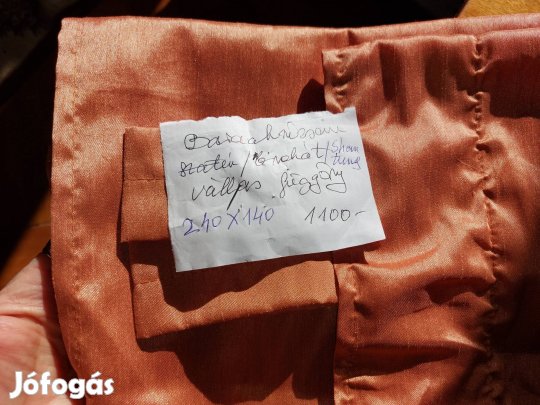 Barackrózsaszín
szatén /lánohát/ Shan
tung
vállfás függöny
240 x 140 1100-
Jófogás